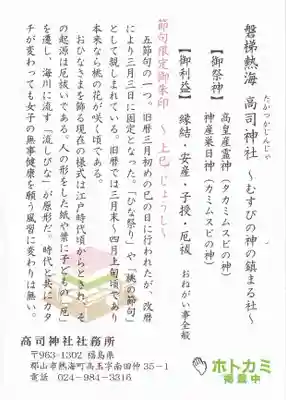 磐梯熱海 高司神社 ～むすびの神の鎮まる社～
たかつかじんじゃ
【御祭神】
高皇産霊神（タカミムスビの神）
神産巣日神（カミムスビの神）
【御利益】 縁結・安産・子授・厄祓 おねがい事全般
節句限定御朱印 ～ 上巳 じょうし～
五節句の一つ。旧暦三月初めの巳の日に行われたが、改暦
により三月三日に固定となった。「ひな祭り」や「桃の節句」
として親しまれている。旧暦では三月末～四月上旬頃であり
本来なら桃の花が咲く頃である。
おひなさまを飾る現在の様式は江戸時代頃からとされ、そ
の起源は厄祓いである。人の形をした紙や葉に子どもの「厄」
を遷し、海川に流す「流しびな」が原形だ。時代と共にカタ
チが変わっても女子の無事健康を願う風習に変わりは無い。
高司神社社務所
〒963-1302 福島県
郡山市熱海町高玉字南田仲35-1
電話 024-984-3316
ホトカミ
掲載中